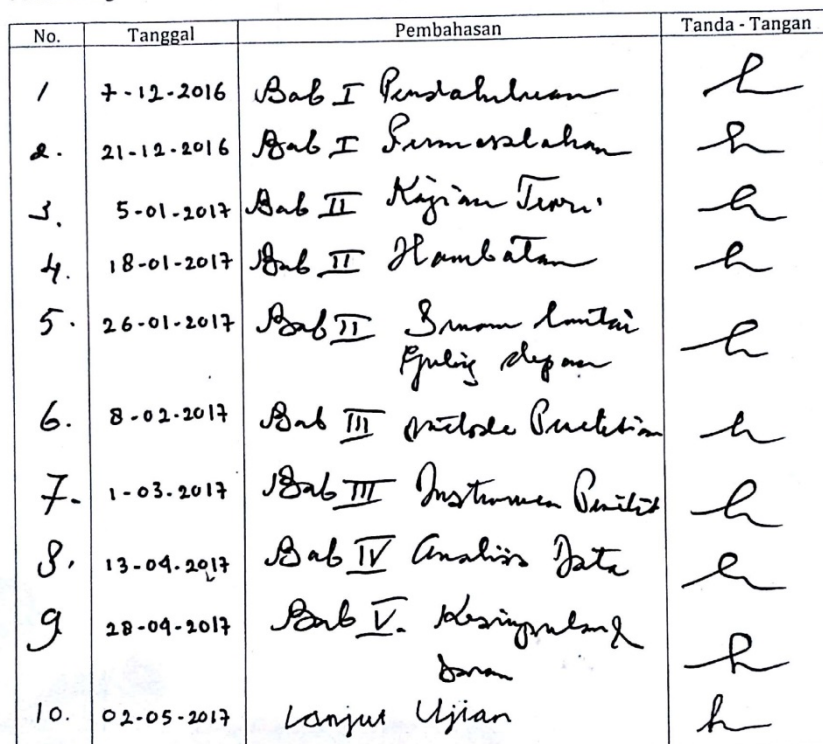 No. Tanggal Pembahasan Tanda - Tangan
1 7-12-2016 Bab I Pendahuluan
2. 21-12-2016 Bab I Permasalahan
3. 5-01-2017 Bab II Kajian Teori
4. 18-01-2017 Bab II Hambatan
5. 26-01-2017 Bab II Senam lantai
guling depan
6. 8-02-2017 Bab III Metode Penelitian
7. 1-03-2017 Bab III Instrumen Penelit
8. 13-04-2017 Bab IV Analisis Data
9 28-04-2017 Bab V. Kesimpulan &
Saran
10. 02-05-2017 Lanjut Ujian